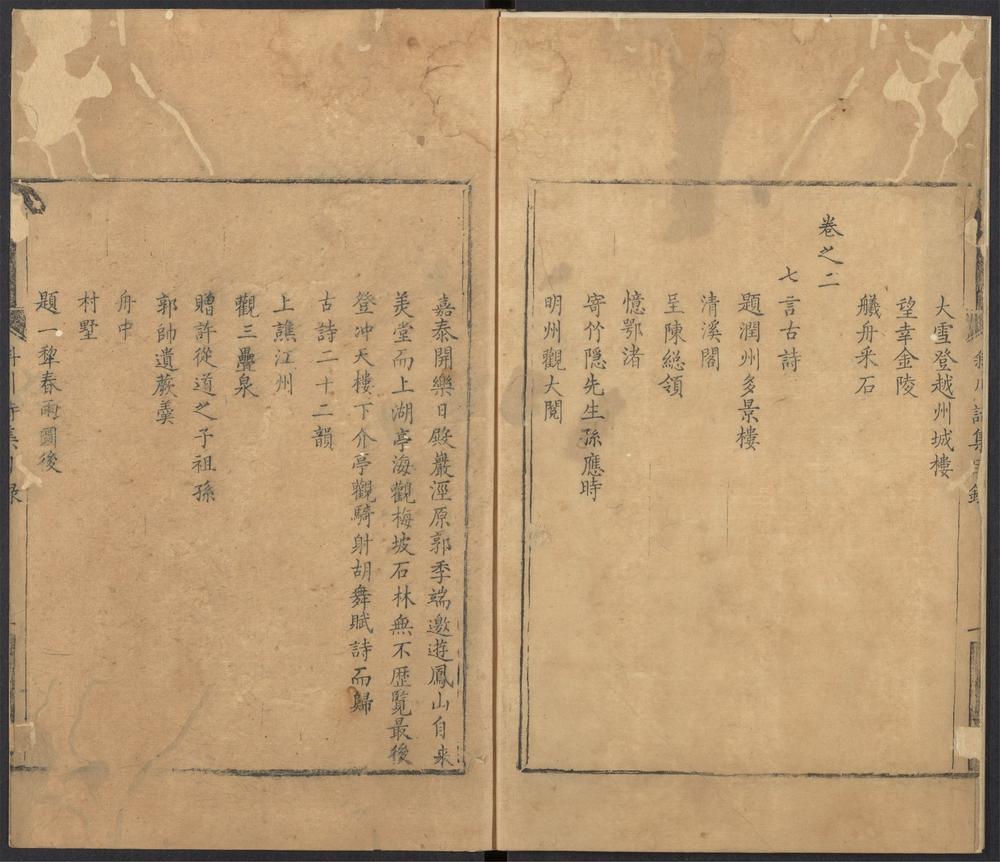 大雪登越州城樓
望幸金陵
艤舟采石
卷之二
七言古詩
題潤州多景樓
清溪閣
呈陳總領
憶鄂渚
寄竹隱先生孫應時
明州觀大閱
嘉泰開樂日殿巖涇原郭季端邀遊鳳山自来
美堂而上湖亭海觀梅坡石林無不歷覽最後
登冲天樓下介亭觀騎射胡舞賦詩而歸
古詩二十二韻
上譙江州
觀三疊泉
贈許從道之子祖孫
郭帥遺蕨羹
舟中
村墅
題一犂春雨圖後